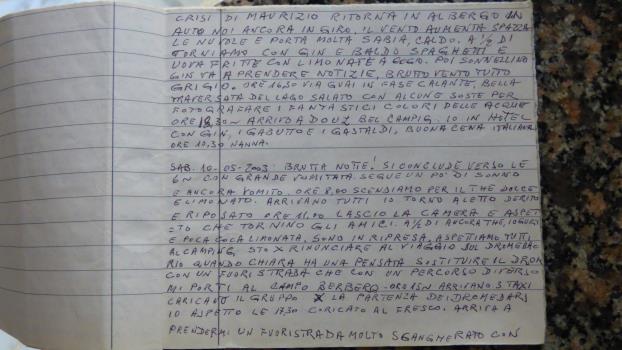 CRISI DI MAURIZIO RITORNA IN ALBERGO IN
AUTO NOI ANCORA IN GIRO, IL VENTO AUMENTA SPAZZA
LE NUVOLE E PORTA MOLTA SABIA, CALDO. A ½ DI
TORNIAMO CON GIN E BALDO SPAGHETTI E
UOVA FRITTE CON LIMONATE A GOGO. POI SONNELLINO
GIN VA A PRENDERE NOTIZIE, BRUTTO VENTO TUTTO
GRIGIO. ORE 14,30 VIA GUAI IN FASE CALANTE, BELLA
TRAVERSATA DEL LAGO SALATO CON ALCUNE SOSTE PER
FOTOGRAFARE I FANTASTICI COLORI DELLE ACQUE
ORE 18,30 ARRIVO A DOUZ BEL CAMPIG. IO IN HOTEL
CON GIN, I GABUTTO E I GASTALDI, BUONA CENA ITALIANA
ORE 22,30 NANNA.
SAB. 10-05-2003: BRUTTA NOTTE! SI CONCLUDE VERSO LE
6 CON GRANDE VOMITATA SEGUE UN PO' DI SONNO
E ANCORA VOMITO. ORE 8,00 SCENDIAMO PER IL THE DOLCE
E LIMONATO. ARRIVANO TUTTI IO TORNO A LETTO
E RIPOSATO ORE 11,00 LASCIO LA CAMERA E ASPET
TO CHE TORNINO GLI AMICI. A ½ DI ANCORA THE, IOGURT
E POCA COCA LIMONATA, SONO IN RIPRESA, ASPETTIAMO TUTTI
AL CAMPING, STO X RINUNCIARE AL VIAGGIO SUL DROMEDA
RIO QUANDO CHIARA HA UNA PENSATA SOSTITUIRE IL DROM
CON UN FUORISTRADA CHE CON UN PERCORSO DIVERSO
MI PORTI AL CAMPO BERBERO. ORE 15 ARRIVANO 3 TAXI
CARICANO IL GRUPPO X LA PARTENZA DEI DROMEDARI
IO ASPETTO LE 17,30 CORICATO AL FRESCO. ARRIVA A
PRENDERMI UN FUORISTRADA MOLTO SGANGHERATO CON